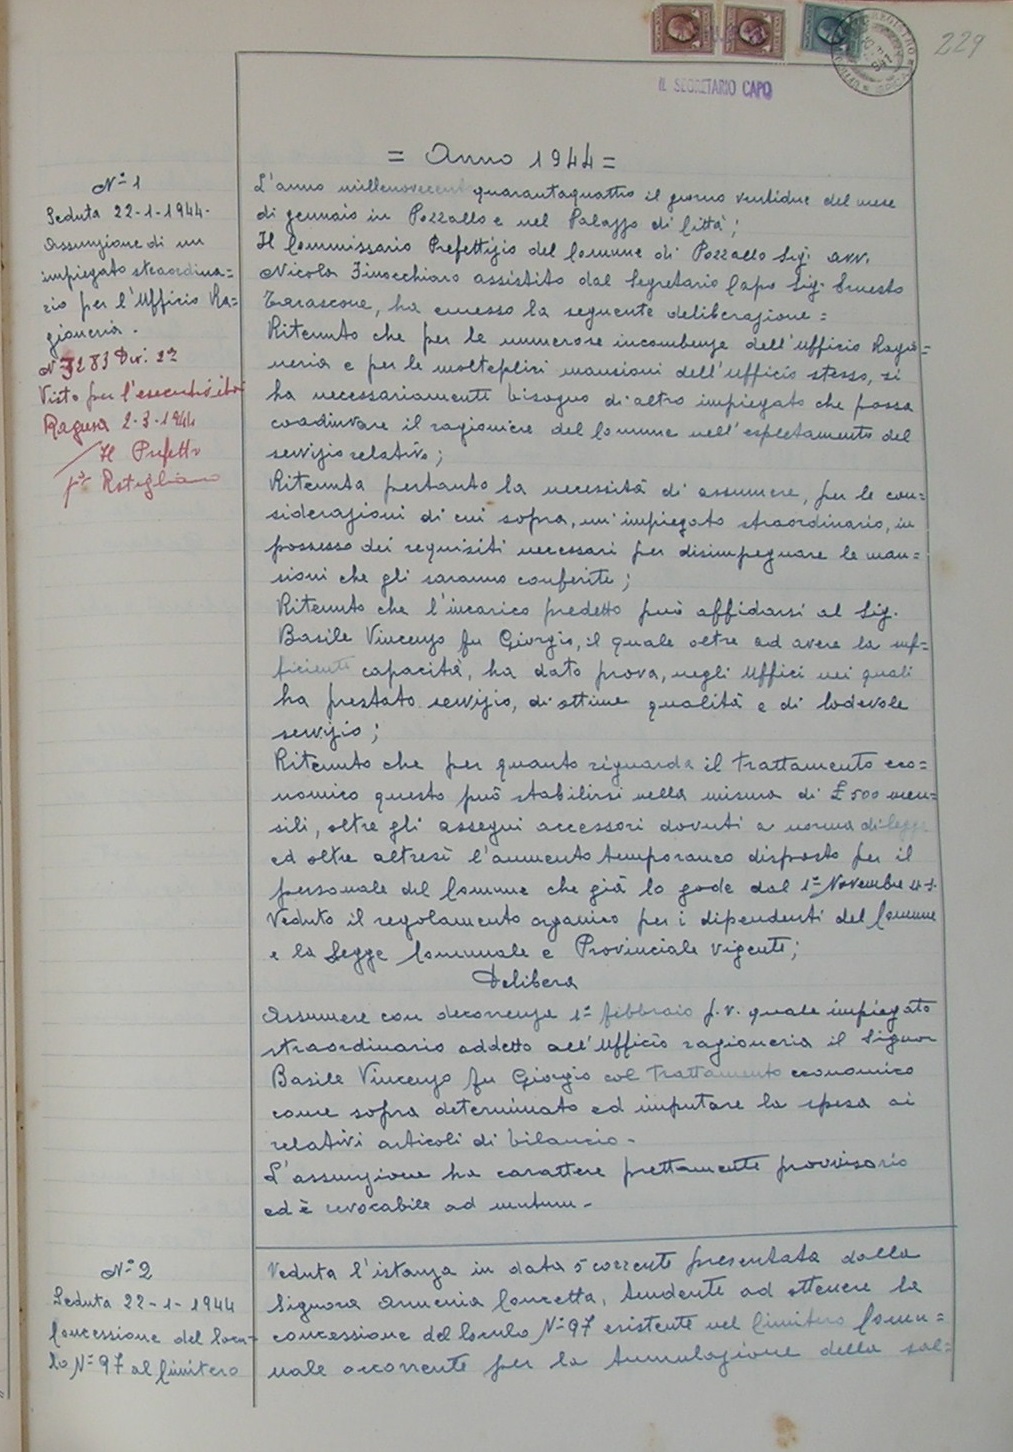 229
IL SEGRETARIO CAPO
= Anno 1944 =
N° 1
Seduta 22-1-1944-
Assunzione di un
impiegato straordina=
rio per l'Ufficio Ra=
gioneria.
N° 3283 Div. 2ª
Visto per l'esecutività
Ragusa 2-3-1944
Il Prefetto
L'anno millenovecentoquarantaquattro il giorno ventidue del mese
di gennaio in Pozzallo e nel Palazzo di Città;
Il Commissario Prefettizio del Comune di Pozzallo Sig. avv.
Nicola Finocchiaro assistito dal Segretario Capo Sig. Ernesto
Tarascone, ha emesso la seguente deliberazione =
Ritenuto che per le numerose incombenze dell'Ufficio Ragio=
neria e per le molteplici mansioni dell'ufficio stesso, si
ha necessariamente bisogno di altro impiegato che possa
coadiuvare il ragioniere del Comune nell'espletamento del
servizio relativo;
Ritenuta pertanto la necessità di assumere, per le con=
siderazioni di cui sopra, un impiegato straordinario, in
possesso dei requisiti necessari per disimpegnare le man=
sioni che gli saranno conferite;
Ritenuto che l'incarico predetto può affidarsi al Sig.
Basile Vincenzo fu Giorgio, il quale oltre ad avere la suf=
ficiente capacità, ha dato prova, negli Uffici nei quali
ha prestato servizio, di ottime qualità e di lodevole
servizio;
Ritenuto che per quanto riguarda il trattamento eco=
nomico questo può stabilirsi nella misura di £ 500 men=
sili, oltre gli assegni accessori dovuti a norma di legge
ed oltre altresì l'aumento temporaneo disposto per il
personale del Comune che già lo gode dal 1° Novembre u.s.
Veduto il regolamento organico per i dipendenti del Comune
e la Legge Comunale e Provinciale vigente;
Delibera
Assumere con decorrenza 1° febbraio p.v. quale impiegato
straordinario addetto all'Ufficio ragioneria il Signor
Basile Vincenzo fu Giorgio col trattamento economico
come sopra determinato ed imputare la spesa ai
relativi articoli di bilancio -
L'assunzione ha carattere prettamente provvisorio
ed è revocabile ad nutum -
N° 2
Seduta 22-1-1944
Concessione del locu-
lo N° 97 al Cimitero
Veduta l'istanza in data 5 corrente presentata dalla
Signora Armenia Concetta, tendente ad ottenere la
concessione del loculo N° 97 esistente nel Cimitero Comu=
nale occorrente per la tumulazione della sal=